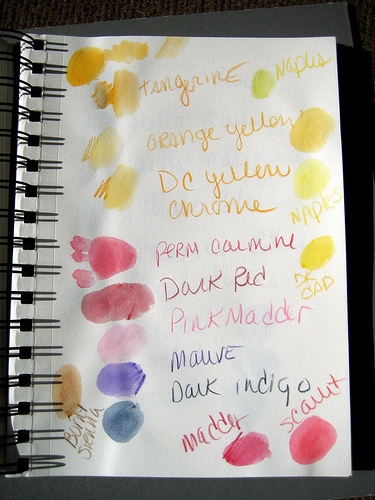 tangerine
Naples
orange yellow
DC yellow
chrome
Naples
Perm carmine
DK
CAD
Dark Red
Pink Madder
mauve
Dark indigo
Burnt
Sienna
madder
Scarlet